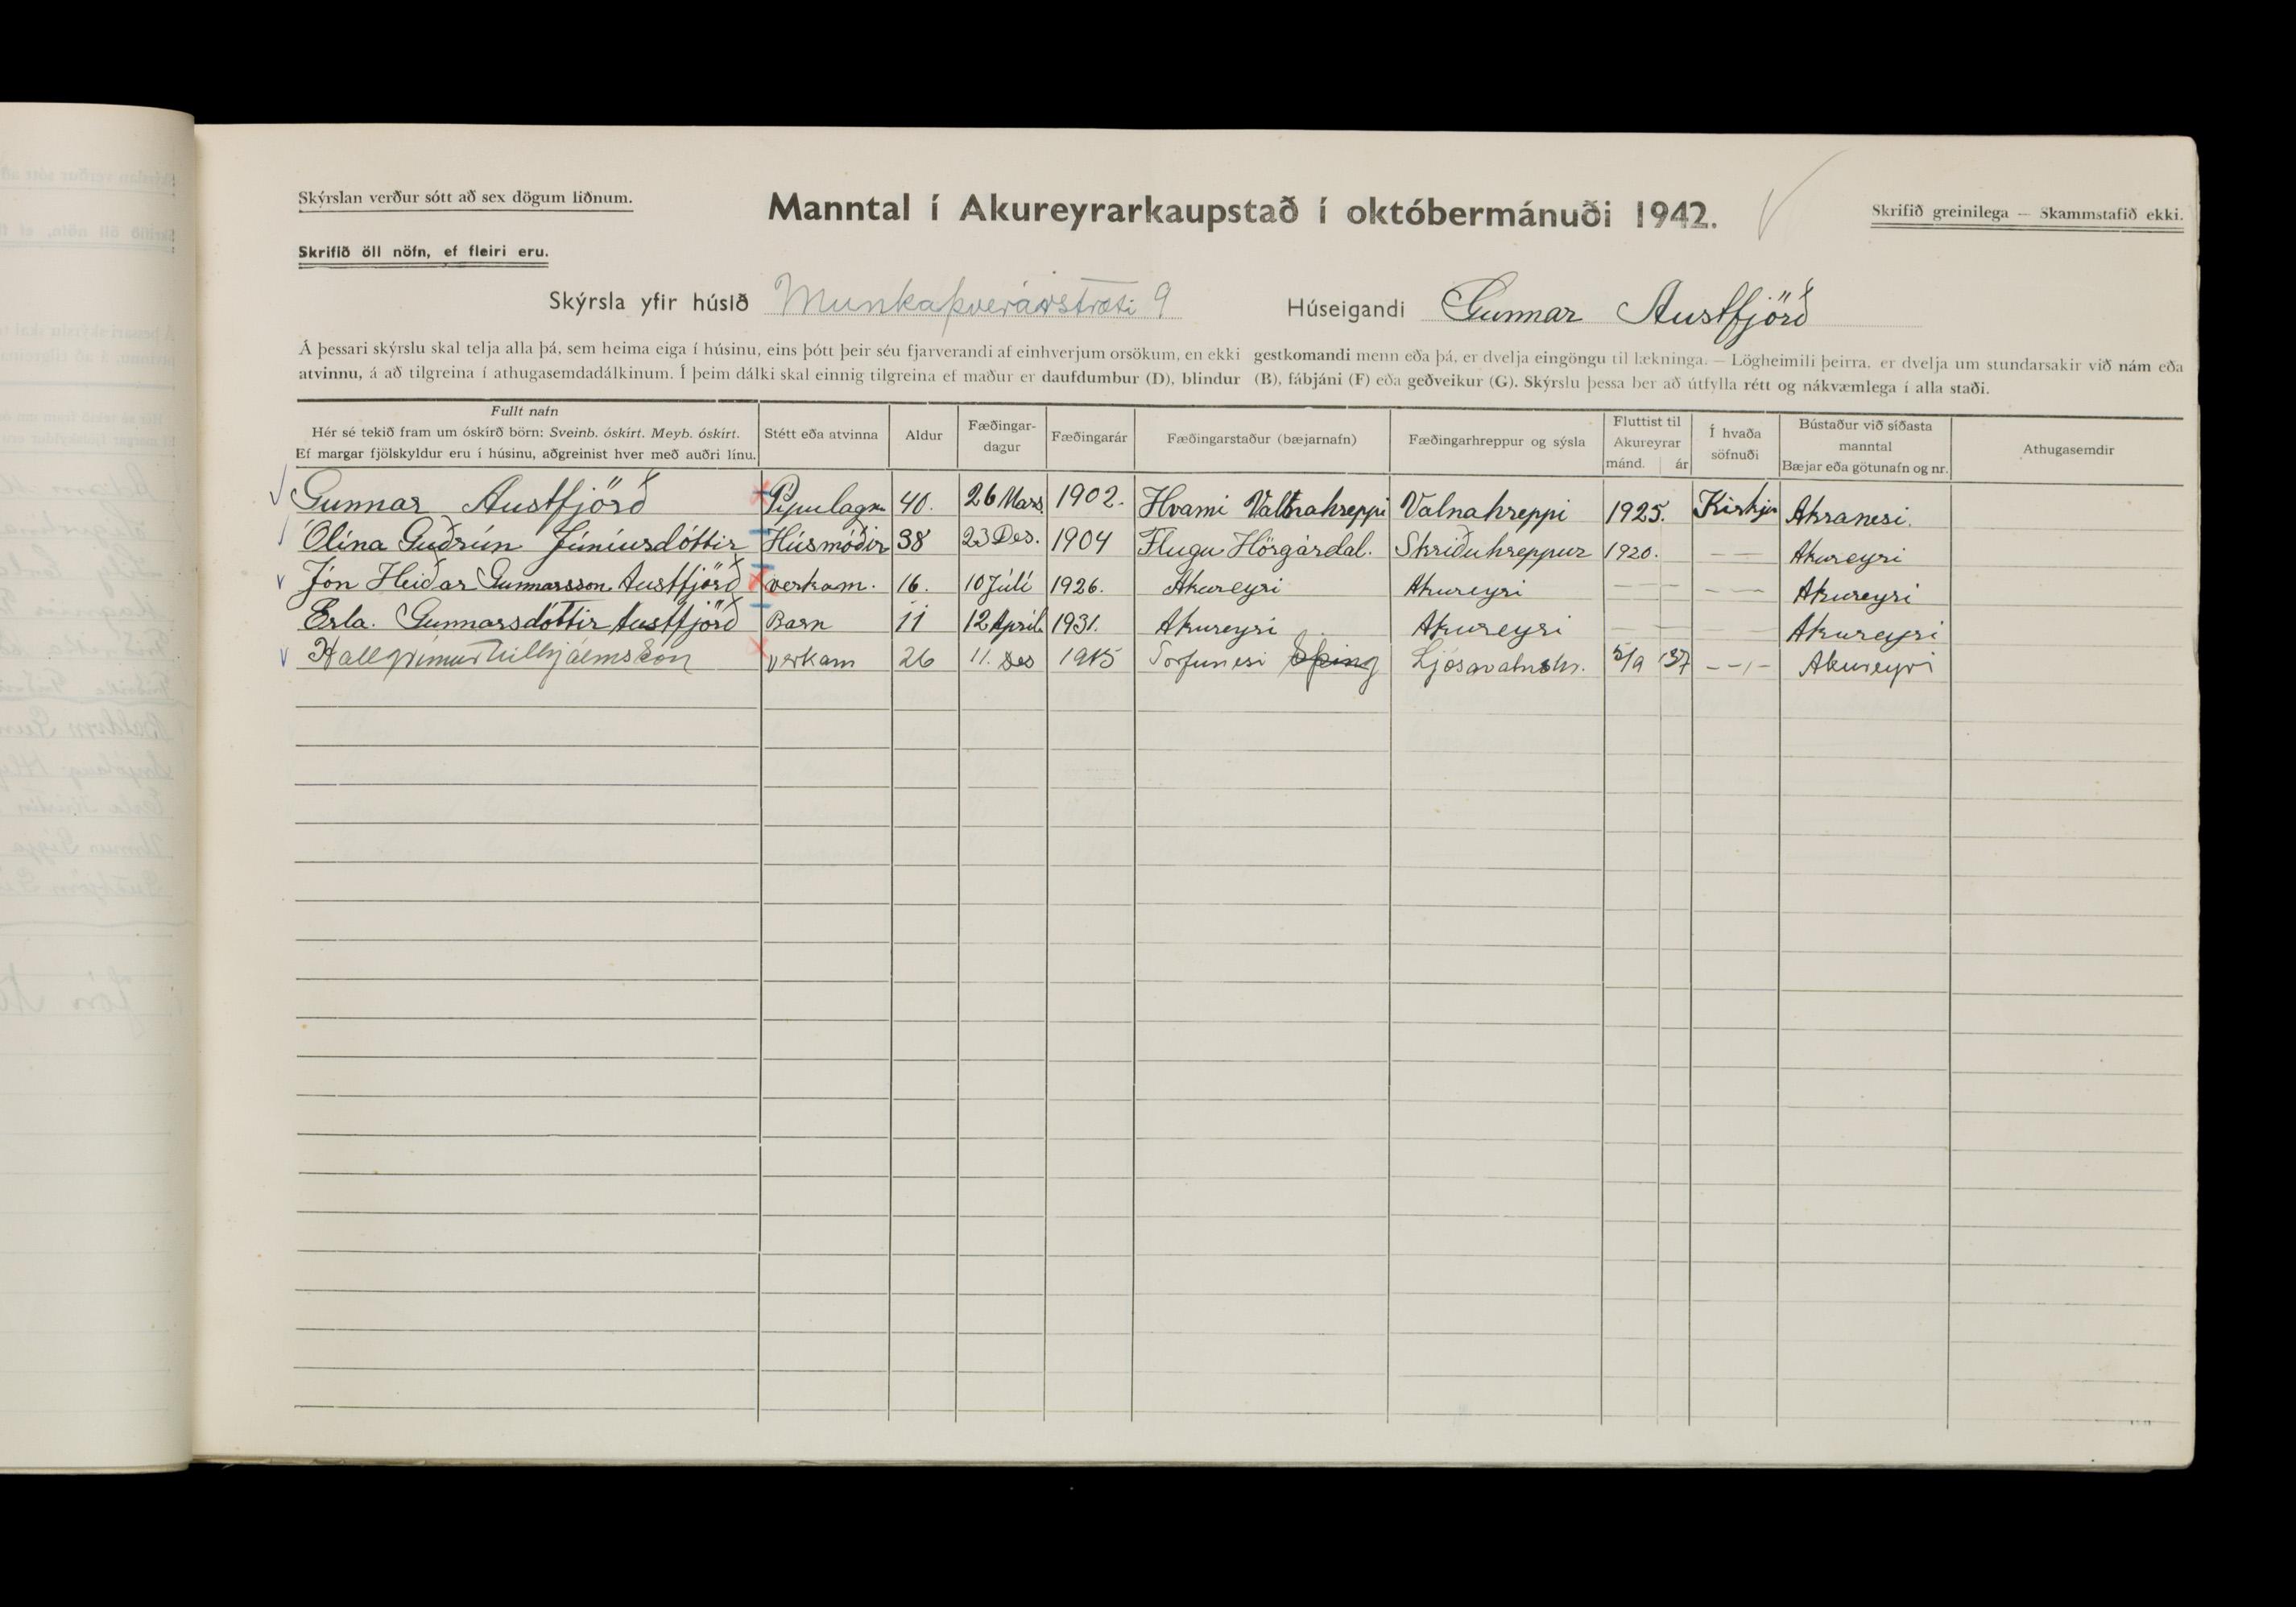 Skýrslan verður sótt að sex dögum liðnum.
Manntal í Akureyrarkaupstað í októbermánuði 1942.
Skrifið greinilega — Skammstafið ekki.
Skrifið öll nöfn, ef fleiri eru.
Skýrsla yfir húsið Munkaþverárstræti 9 Húseigandi Gunnar Austfjörð
Á þessari skýrslu skal telja alla þá, sem heima eiga í húsinu, eins þótt þeir séu fjarverandi af einhverjum orsökum, en ekki gestkomandi menn eða þá, er dvelja eingöngu til lækninga. — Lögheimili þeirra, er dvelja um stundarsakir við nám eða
atvinnu, á að tilgreina í athugasemdadálkinum. Í þeim dálki skal einnig tilgreina ef maður er daufdumbur (D), blindur (B), fábjáni (F) eða geðveikur (G). Skýrslu þessa ber að útfylla rétt og nákvæmlega í alla staði.
Fullt nafn
Hér sé tekið fram um óskírð börn: Sveinb. óskírt. Meyb. óskírt.
Ef margar fjölskyldur eru í húsinu, aðgreinist hver með auðri línu.
Stétt eða atvinna
Aldur
Fæðingar-
dagur
Fæðingarár
Fæðingarstaður (bæjarnafn)
Fæðingarhreppur og sýsla
Fluttist til
Akureyrar
mánd. ár
Í hvaða
söfnuði
Bústaður við síðasta
manntal
Bæjar eða götunafn og nr.
Athugasemdir
Gunnar Austfjörð Pípulagn 40. 26 Mars 1902. Hvami Vatnahreppi Valnahreppi 1925. Kirkju Akranesi.
Ólína Guðrún Júníusdóttir Húsmóðir 38 23 Des. 1904 Flugu Hörgárdal. Skriðuhreppur 1920. — — Akureyri
Jón Heiðar Gunnarsson Austfjörð verkam. 16. 10 Júlí 1926. Akureyri Akureyri — — — — Akureyri
Erla. Gunnarsdóttir Austfjörð Barn 11 12 Apríl 1931. Akureyri Akureyri — — — Akureyri
Hallgrímur Vilhjálmsson verkam 26 11. Des 1915 Torfunesi Ljósavatnshr. 5/9 37 – – , – Akureyri